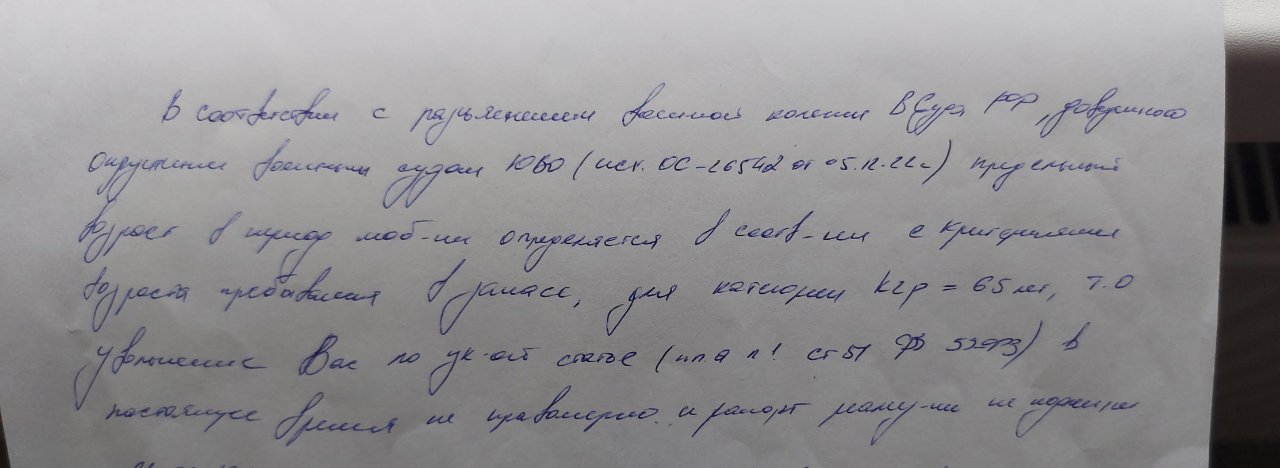 В соответствии с разъяснением военной колегии ВСуда РФ, доведенного
окружным военным судом ЮВО (исх. ОС-26542 от 05.12.22г) предельный
возраст в период моб-ии определяется в соотв-ии с критериями
возраста пребывания в запасе, для категории к2р = 65 лет, т.о
увольнение Вас по ук-ой статье (пп а п1 ст 51 ФЗ 53ФЗ) в
настоящее время не правомерно и рапорт не